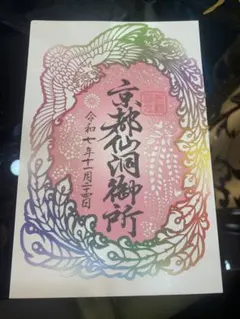 京都仙洞御所
令和七年十一月二十四日